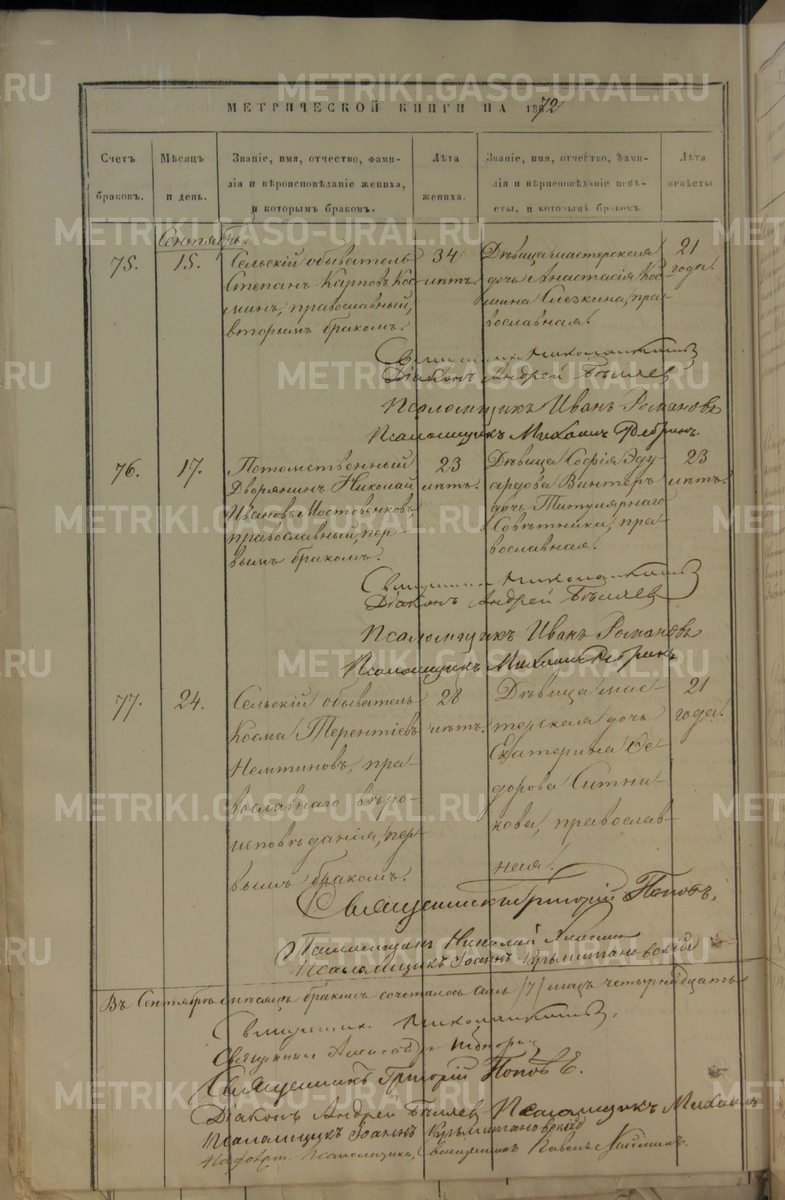 МЕТРИЧЕСКОЙ КНИГИ НА 1872
Счетъ браковъ.
Мѣсяцъ и день.
Званіе, имя, отчество, фами-
лія и вѣроисповѣданіе жениха,
и которымъ бракомъ.
Лѣта жениха.
Званіе, имя, отчество, фами-
лія и вѣроисповѣданіе невѣ-
сты, и которымъ бракомъ.
Лѣта невѣсты
Сентябрь.
75.
15.
Сельскій обыватель
Степанъ Карповъ Кос-
минъ, православный,
вторымъ бракомъ.
34
лѣтъ.
Дѣвица мастерская
дочь Анастасія Кос-
мина Слезкина, пра-
вославная.
21
года.
Діаконъ Андрей Бѣляев
Псаломщикъ Иванъ Романовъ
Псаломщикъ Михаил
76.
17.
Потомственный
Дворянинъ Николай
Ивановъ Мостовенковъ,
православный, пер-
вымъ бракомъ.
23
лѣтъ.
Дѣвица Софія Эду-
ардова Винтеръ
дочь Титулярнаго
Совѣтника, пра-
вославная.
23
лѣтъ.
Діаконъ Андрей Бѣляев
Псаломщикъ Иванъ Романовъ
Псаломщикъ Михаил
77.
24.
Сельскій обыватель
Косма Терентіевъ
Немтиновъ, пра-
вославнаго вѣро-
исповѣданія, пер-
вымъ бракомъ.
28
лѣтъ.
Дѣвица мас-
терская дочь
Екатерина Ѳе-
дорова Ситни-
кова, православ-
ная.
21
года.
Священникъ Григорій Поповъ.
Псаломщикъ Николай
Псаломщикъ Іоаннъ
Въ Сентябрѣ мѣсяцѣ бракомъ сочеталось семь /7/ лицъ четырнадцать
Священник
Священникъ Александръ
Священникъ Григорій Поповъ.
Діаконъ Андрей Бѣляев Псаломщикъ Михаилъ
Псаломщикъ Іоаннъ
Псаломщика, Священникъ Павелъ
METRIKI.GASO-URAL.RU